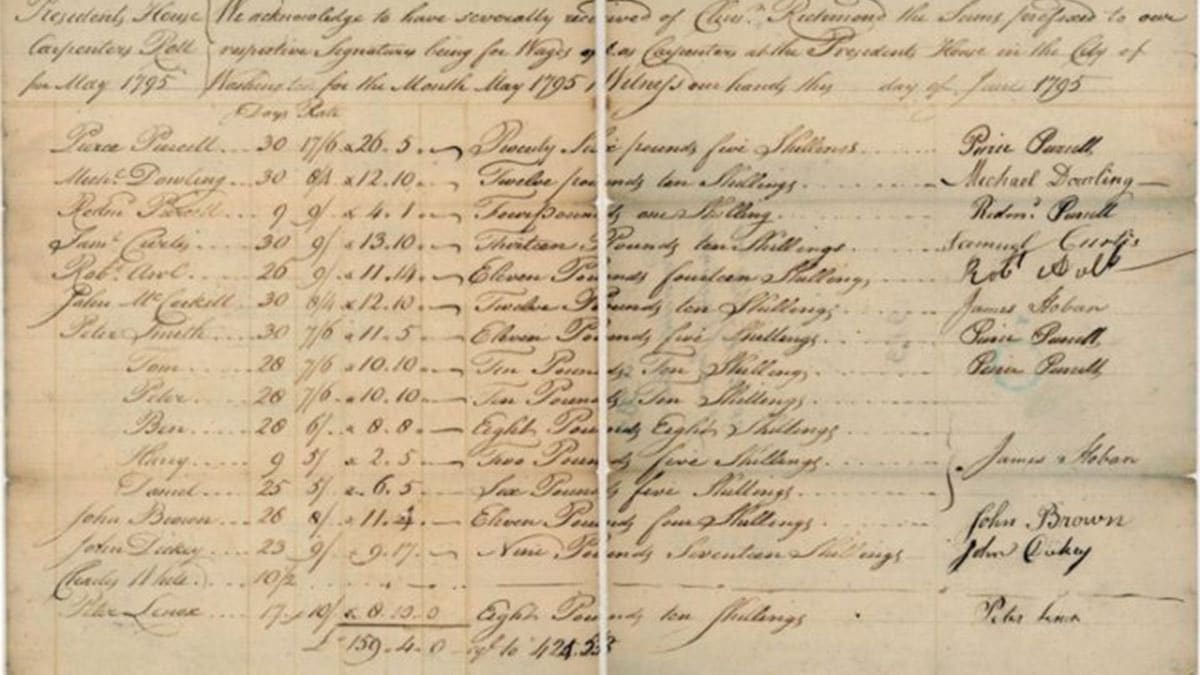 Presidents House We acknowledge to have severally received of Clem.n Richmond the Sums prefixed to our
Carpenters Roll respective Signatures being for Wages as Carpenters at the Presidents House in the City of
for May 1795 Washington for the Month May 1795 Witness our hands this day of June 1795
Days Rate
Pierce Purcell 30 17/6 26.5 Twenty Six pounds five Shillings Peirce Purcell
Mich.l Dowling 30 8/4 12.10 Twelve pounds ten Shillings Michael Dowling
Redm.d Purcell 9 9/ 4.1 Four pounds one Shilling Redm.d Purcell
Sam.l Curtis 30 9/ 13.10 Thirteen Pounds ten Shillings Samuel Curtis
Rob.t 26 9/ 11.14 Eleven Pounds fourteen Shillings Rob.t
John McCorkell 30 8/4 12.10 Twelve Pounds ten Shillings James Hoban
Peter Smith 30 7/6 11.5 Eleven Pounds five Shillings Peirce Purcell
Tom 28 7/6 10.10 Ten Pounds Ten Shillings Peirce Purcell
Peter 28 7/6 10.10 Ten Pounds Ten Shillings
Ben 28 6/ 8.8 Eight Pounds Eight Shillings
Harry 9 5/ 2.5 Two Pounds five Shillings James Hoban
Daniel 25 5/ 6.5 Six Pounds five Shillings
John Brown 28 8/ 11.4 Eleven Pounds four Shillings John Brown
John Dickey 23 9/. 9.17. Nine Pounds Seventeen Shillings John Dickey
Charles White 10/2
Peter Lenox 17 10/ 8.10.0 Eight Pounds ten Shillings Peter Lenox
£ 159.4.0